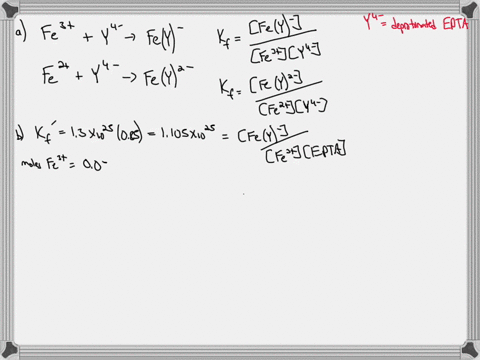 a) Fe³⁺ + Y⁴⁻ → Fe(Y)⁻ K_f = [Fe(Y)⁻] / [Fe³⁺][Y⁴⁻]
Y⁴⁻ = deprotonated EDTA
Fe²⁺ + Y⁴⁻ → Fe(Y)²⁻ K_f = [Fe(Y)²⁻] / [Fe²⁺][Y⁴⁻]
b) K_f′ = 1.3×10²⁵ (0.85) = 1.105×10²⁵ = [Fe(Y)⁻] / [Fe³⁺][EDTA]
moles Fe³⁺ = 0.0